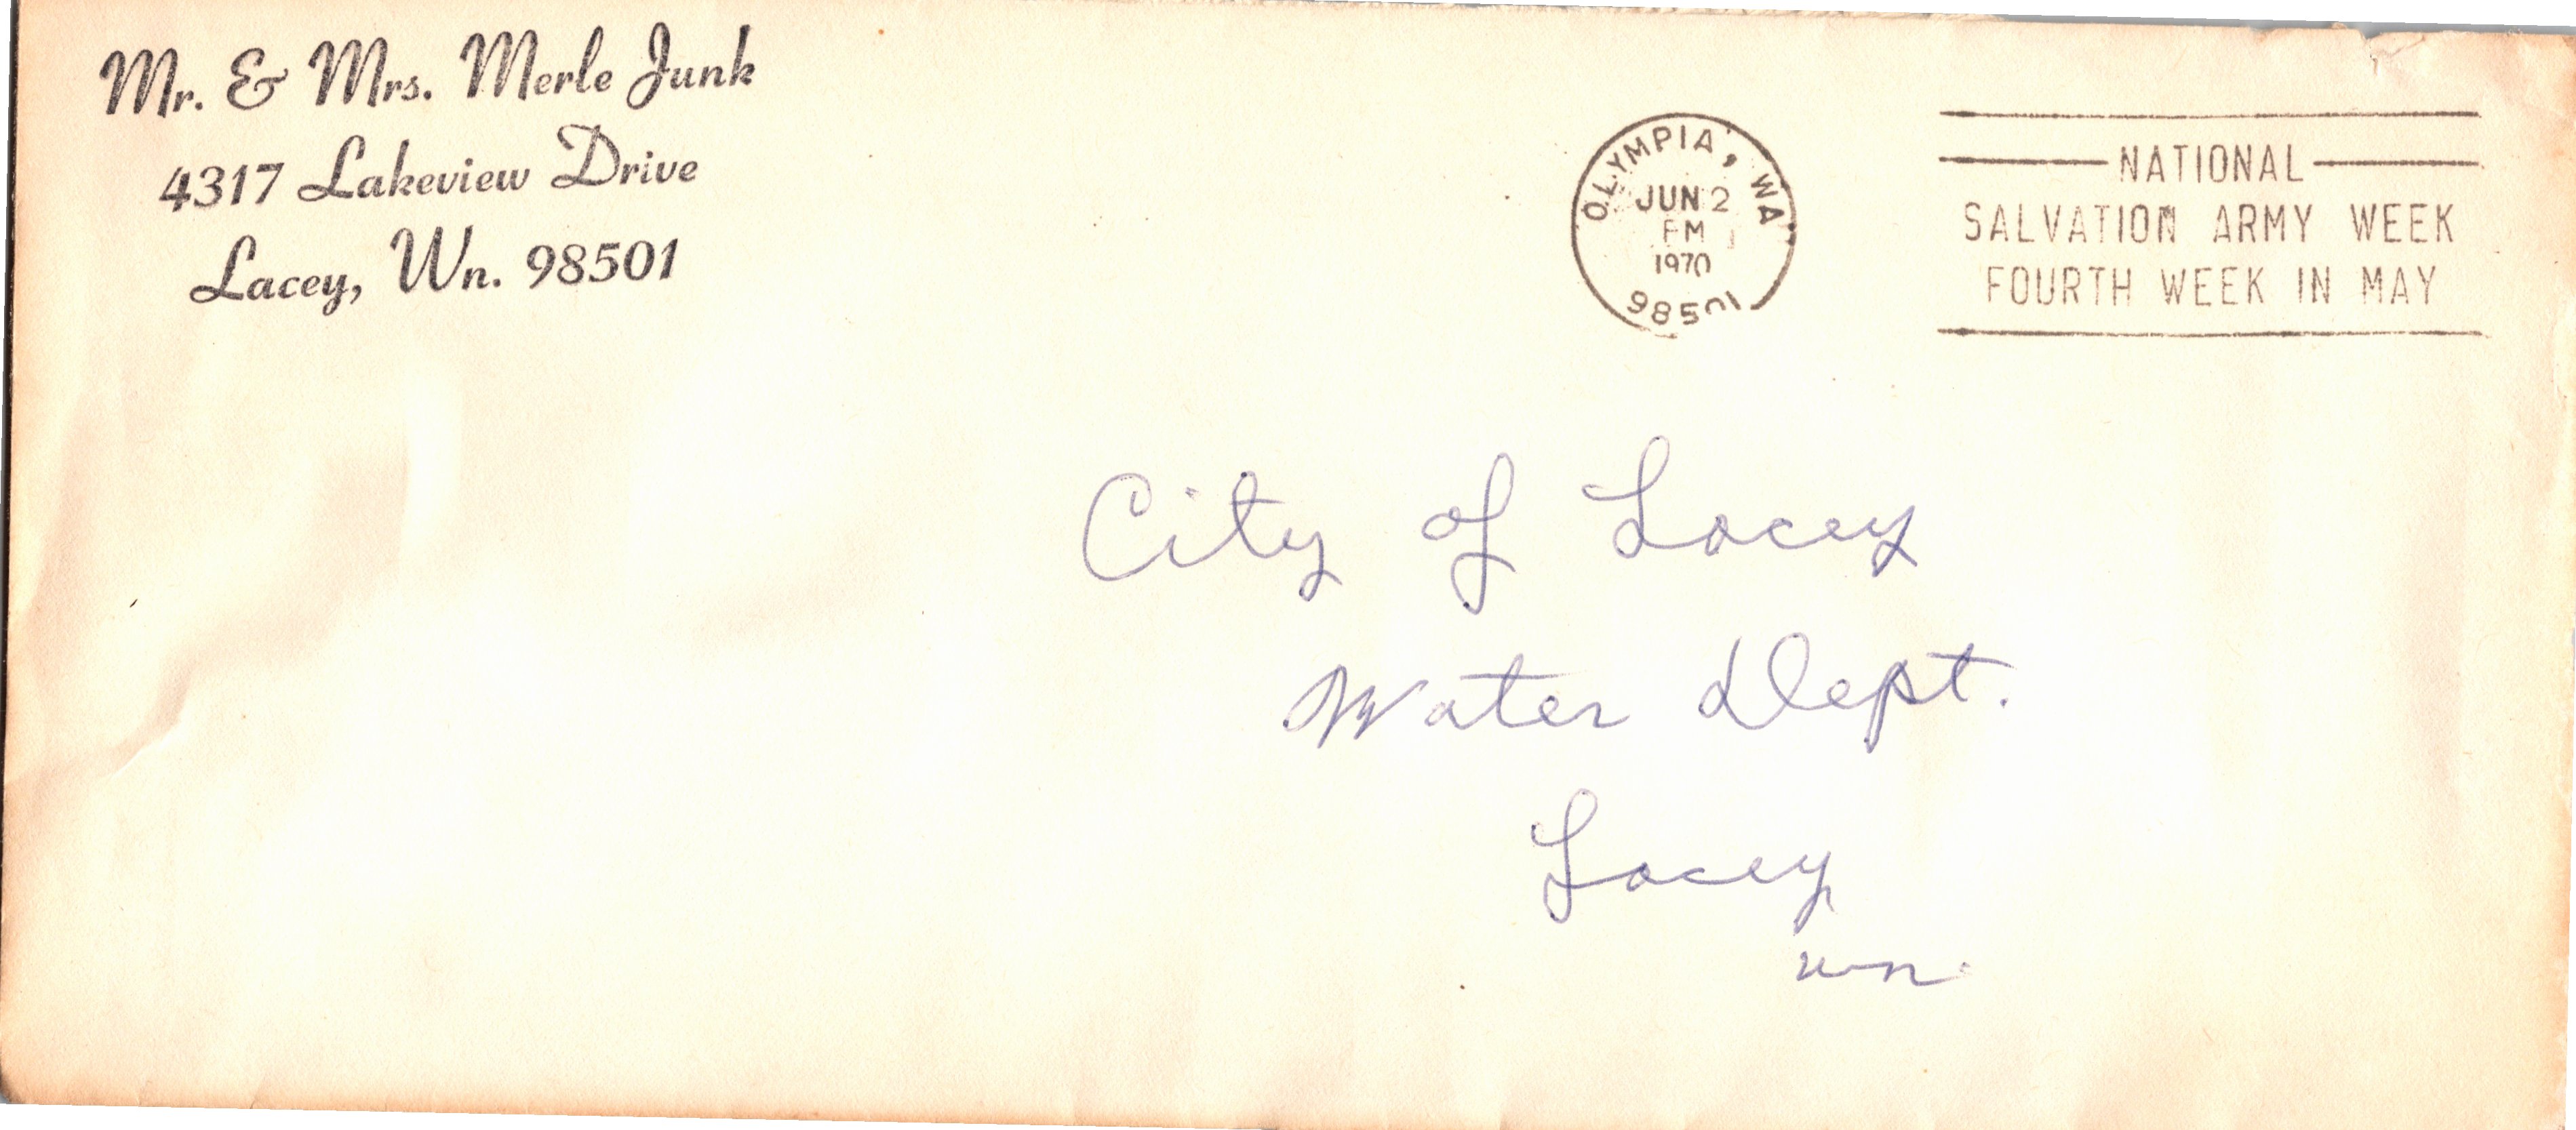 Mr. & Mrs. Merle Junk
4317 Lakeview Drive
Lacey, Wn. 98501
OLYMPIA, WA
JUN 2
PM
1970
98501
NATIONAL
SALVATION ARMY WEEK
FOURTH WEEK IN MAY
City of Lacey
Water Dept.
Lacey
wn.